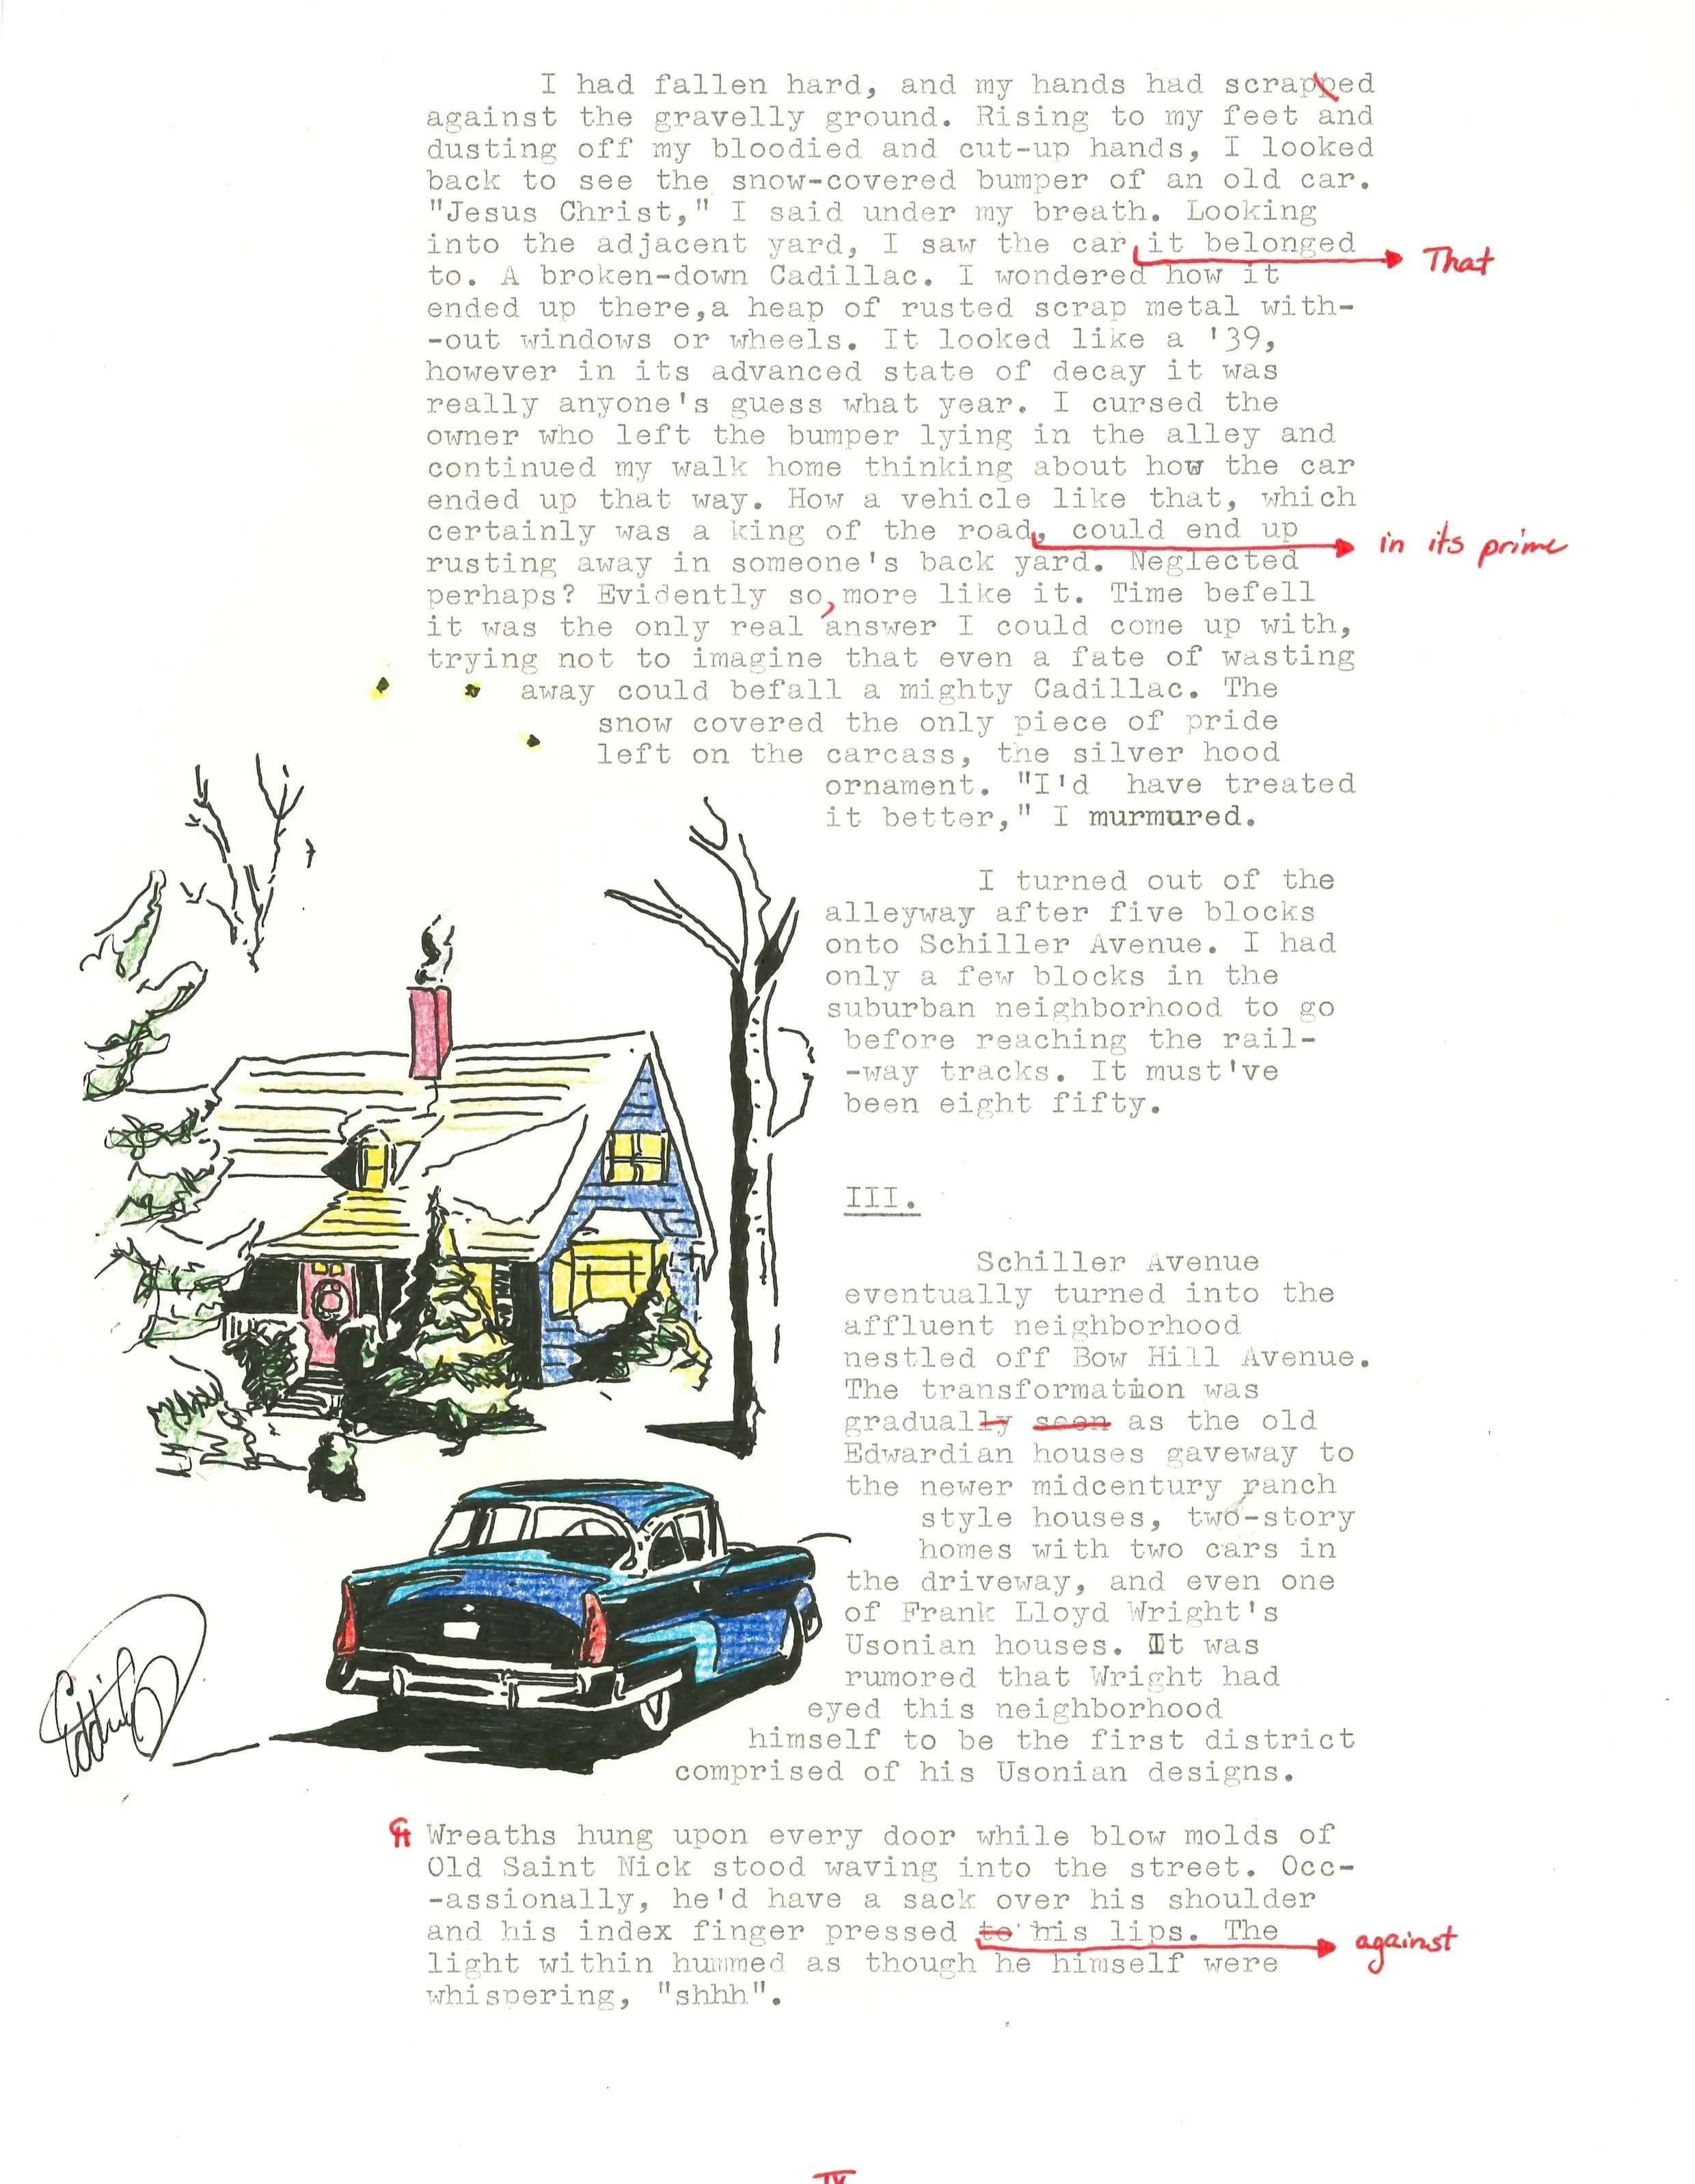 I had fallen hard, and my hands had scrapped
against the gravelly ground. Rising to my feet and
dusting off my bloodied and cut-up hands, I looked
back to see the snow-covered bumper of an old car.
"Jesus Christ," I said under my breath. Looking
into the adjacent yard, I saw the car it belonged
That
to. A broken-down Cadillac. I wondered how it
ended up there,a heap of rusted scrap metal with-
-out windows or wheels. It looked like a '39,
however in its advanced state of decay it was
really anyone's guess what year. I cursed the
owner who left the bumper lying in the alley and
continued my walk home thinking about how the car
ended up that way. How a vehicle like that, which
certainly was a king of the road, could end up
in its prime
rusting away in someone's back yard. Neglected
perhaps? Evidently so, more like it. Time befell
it was the only real answer I could come up with,
trying not to imagine that even a fate of wasting
away could befall a mighty Cadillac. The
snow covered the only piece of pride
left on the carcass, the silver hood
ornament. "I'd have treated
it better," I murmured.
I turned out of the
alleyway after five blocks
onto Schiller Avenue. I had
only a few blocks in the
suburban neighborhood to go
before reaching the rail-
-way tracks. It must've
been eight fifty.
III.
Schiller Avenue
eventually turned into the
affluent neighborhood
nestled off Bow Hill Avenue.
The transformation was
gradually seen as the old
Edwardian houses gaveway to
the newer midcentury ranch
style houses, two-story
homes with two cars in
the driveway, and even one
of Frank Lloyd Wright's
Usonian houses. It was
rumored that Wright had
eyed this neighborhood
himself to be the first district
comprised of his Usonian designs.
Wreaths hung upon every door while blow molds of
Old Saint Nick stood waving into the street. Occ-
-assionally, he'd have a sack over his shoulder
and his index finger pressed to his lips. The
against
light within hummed as though he himself were
whispering, "shhh".
IV